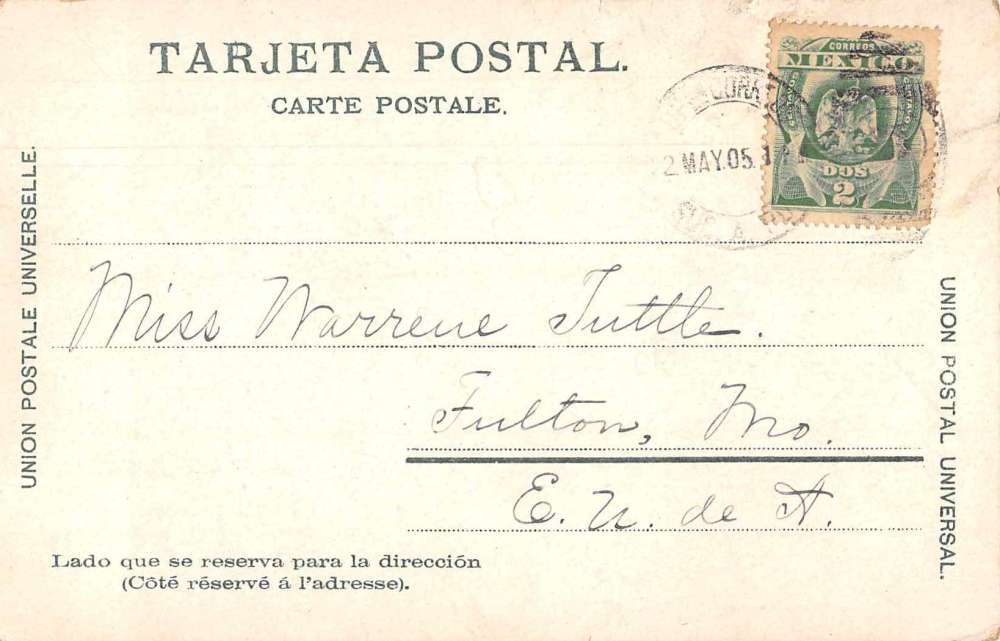 TARJETA POSTAL.
CARTE POSTALE.
CORREOS
MEXICO
CENTAVOS
CENTAVOS
DOS
2
2 MAY.05.
UNION POSTALE UNIVERSELLE.
UNION POSTAL UNIVERSAL.
Miss Warrene Tuttle.
Fulton, Mo.
E. U. de A.
Lado que se reserva para la dirección
(Côté réservé á l'adresse).